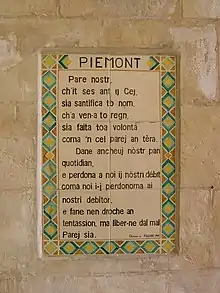 PIEMONT
Pare nostr,
ch'it ses ant ij Cej,
sia santifica tò nom,
ch'a ven-a tò regn,
sia faita toa volontà
coma 'n cel parej an tèra.
Dane ancheuj nòstr pan
quotidian,
e perdona a noi ij nostri debit
coma noi i-j perdonoma ai
nostri debitor,
e fane nen droché an
tentassion, ma liber-ne dal mal
Parej sia.